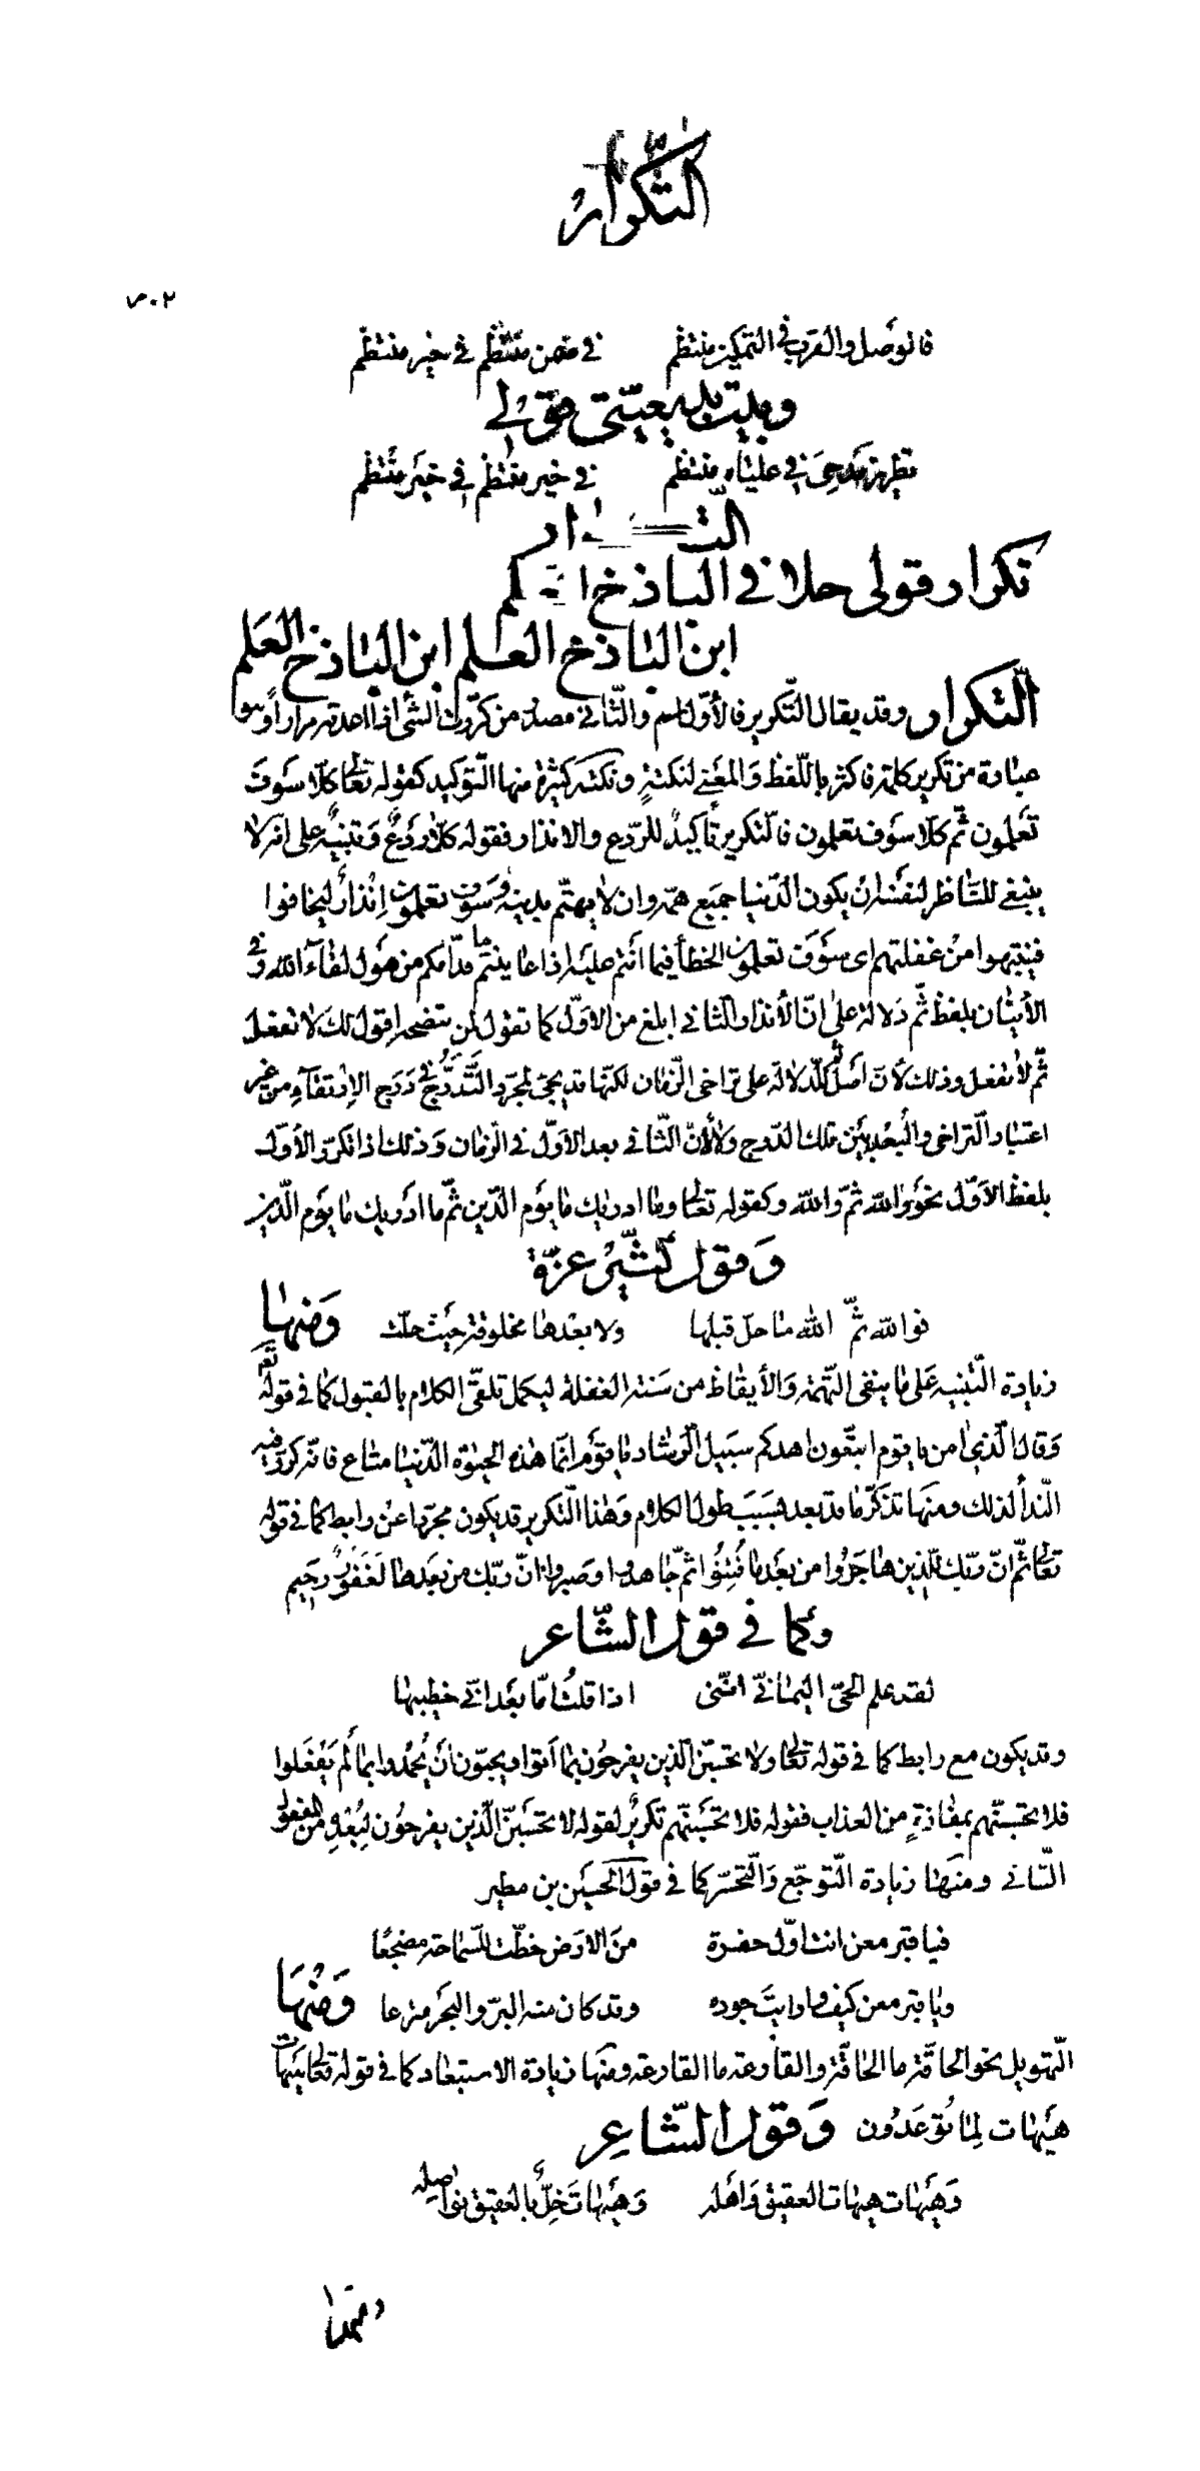 التكرار
٧٠٢
فالوصل والقرب في التمكين منتظم في ضمن منتظم في خير منتظم
وبيت بديعيتي قولي
تطريز مدحي في علياه منتظم في خير منتظم في خير منتظم
التكرار
تكرار قولي حلا في الباذخ العلم
ابن الباذخ العلم ابن الباذخ العلم
التّكرار وقد يقال التّكرير فالأوّل اسم والثّاني مصدر من كرّرت الشّي اذا اعدته مرارًا وهو
عبارة من تكرير كلمة فاكثر باللّفظ والمعنى لنكتةٍ ونكته كثيرة منها التّوكيد كقوله تعالى كلّا سوف
تعلمون ثمّ كلّا سوف تعلمون فالتّكرير تأكيد للرّدع والانذار فقوله كلّا ردعٌ وتنبيه على انّه لا
ينبغي للنّاظر لنفسه ان يكون الدّنيا جميع همّه وان لا يهتمّ بدينه وسوف تعلمون إنذارٌ ليخافوا
فينتبهوا من غفلتهم اى سوف تعلمون الخطأ فيما أنتم عليه اذا عاينتم ما قدّامكم من هول لقاء الله وفى
الأتيان بلفظ ثمّ دلالة على انّ الأنذار الثاني ابلغ من الاوّل كما تقول لمن تنصحه اقول لك لا تفعل
ثمّ لا تفعل وذلك لأنّ اصل ثمّ للدّلالة على تراخى الزّمان لكنّها قد يجئ لمجرّد التّدرّج فى درج الإرتقاء من غير
اعتبار التّراخى والبُعد بين تلك الدّرج ولا لأنّ الثّاني بعد الاوّل في الزمان وذلك اذا تكرّر الأوّل
بلفظ الاوّل نحو والله ثمّ والله وكقوله تعالى وما ادريك ما يوم الدّين ثمّ ما ادريك ما يوم الدّين
وقول كثيّر عزّة
فوالله ثمّ الله ما حلّ قبلها ولا بعدها مخلوقة حيث حلّت ومنها
زيادة التّنبيه على ما ينفى التّهمة والأيقاظ من سنة الغفلة ليكمل تلقّى الكلام بالقبول كما في قوله تعالى
وقال الّذي امن يا قوم اتبعون اهدكم سبيل الرشاد يا قوم انما هذه الحيوة الدّنيا متاع فانّه كرّر فيه
النّدأ لذلك ومنها تذكّر ما قد بعد بسبب طول الكلام وهذا التّكرير قد يكون مجرّدا عن رابط كما في قوله
تعالى ثمّ انّ ربّك للّذين هاجروا من بعد ما فُتِنُوا ثمّ جاهدوا وصبروا انّ ربّك من بعدها لغفورٌ رحيم
وكما في قول الشّاعر
لقد علم الحىّ اليمانيّ انّنى اذا قلت امّا بعد انّي خطيبها
وقد يكون مع رابط كما في قوله تعالى ولا تحسبنّ الّذين يفرحون بما أتوا ويحبّون ان يُحمدوا بما لم يفعلوا
فلا تحسبنّهم بمفازةٍ من العذاب فقوله فلا تحسبنّهم تكريرٌ لقوله لا تحسبنّ الّذين يفرحون لبُعدِه من المفعول
الثّاني ومنها زيادة التّوجّع والتّحسّر كما في قول الحسين بن مطير
فيا قبر معن انت اوّل حفرة من الارض خطّت للسّماحة مضجعًا
ويا قبر معن كيف واريت جوده وقد كان منه البرّ والبحر مترعا ومنها
التّهويل نحو الحاقّة ما الحاقّة والقارعة ما القارعة ومنها زيادة الاستبعاد كما في قوله تعالى هيهات
هيهات لما توعدون وقول الشّاعر
وهيهات هيهات العقيق واهله وهيهات خلٌّ بالعقيق نواصله